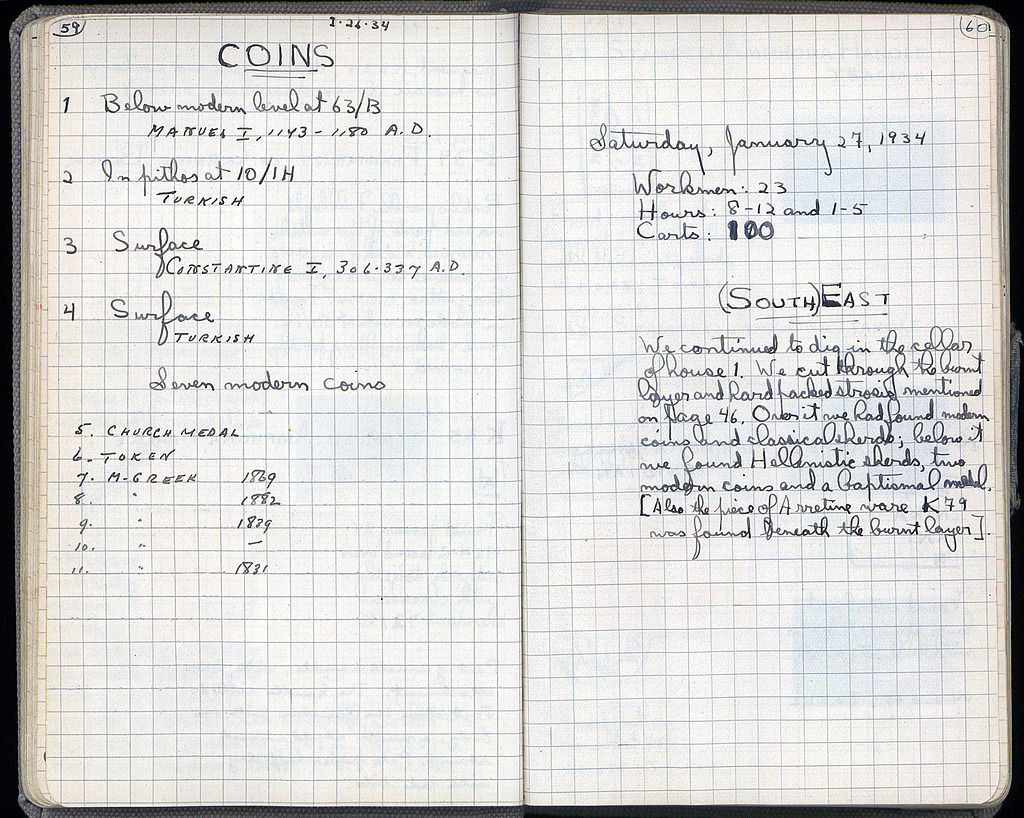 59
1·26·34
COINS
1 Below modern level at 63/B
MANUEL I, 1143-1180 A.D.
2 In pithos at 10/1H
TURKISH
3 Surface
CONSTANTINE I, 306-337 A.D.
4 Surface
TURKISH
Seven modern coins
5. CHURCH MEDAL
6. TOKEN
7. M-GREEK 1869
8. " 1882
9. " 1839
10. " —
11. " 1831
60
Saturday, January 27, 1934
Workmen: 23
Hours: 8-12 and 1-5
Carts: 100
(SOUTH)EAST
We continued to dig in the cellar
of house 1. We cut through the burnt
layer and hard packed strosis mentioned
on page 46. Over it we had found modern
coins and classical sherds; below it
we found Hellenistic sherds, two
modern coins and a baptismal medal.
[Also the piece of Arretine ware K79
was found beneath the burnt layer].